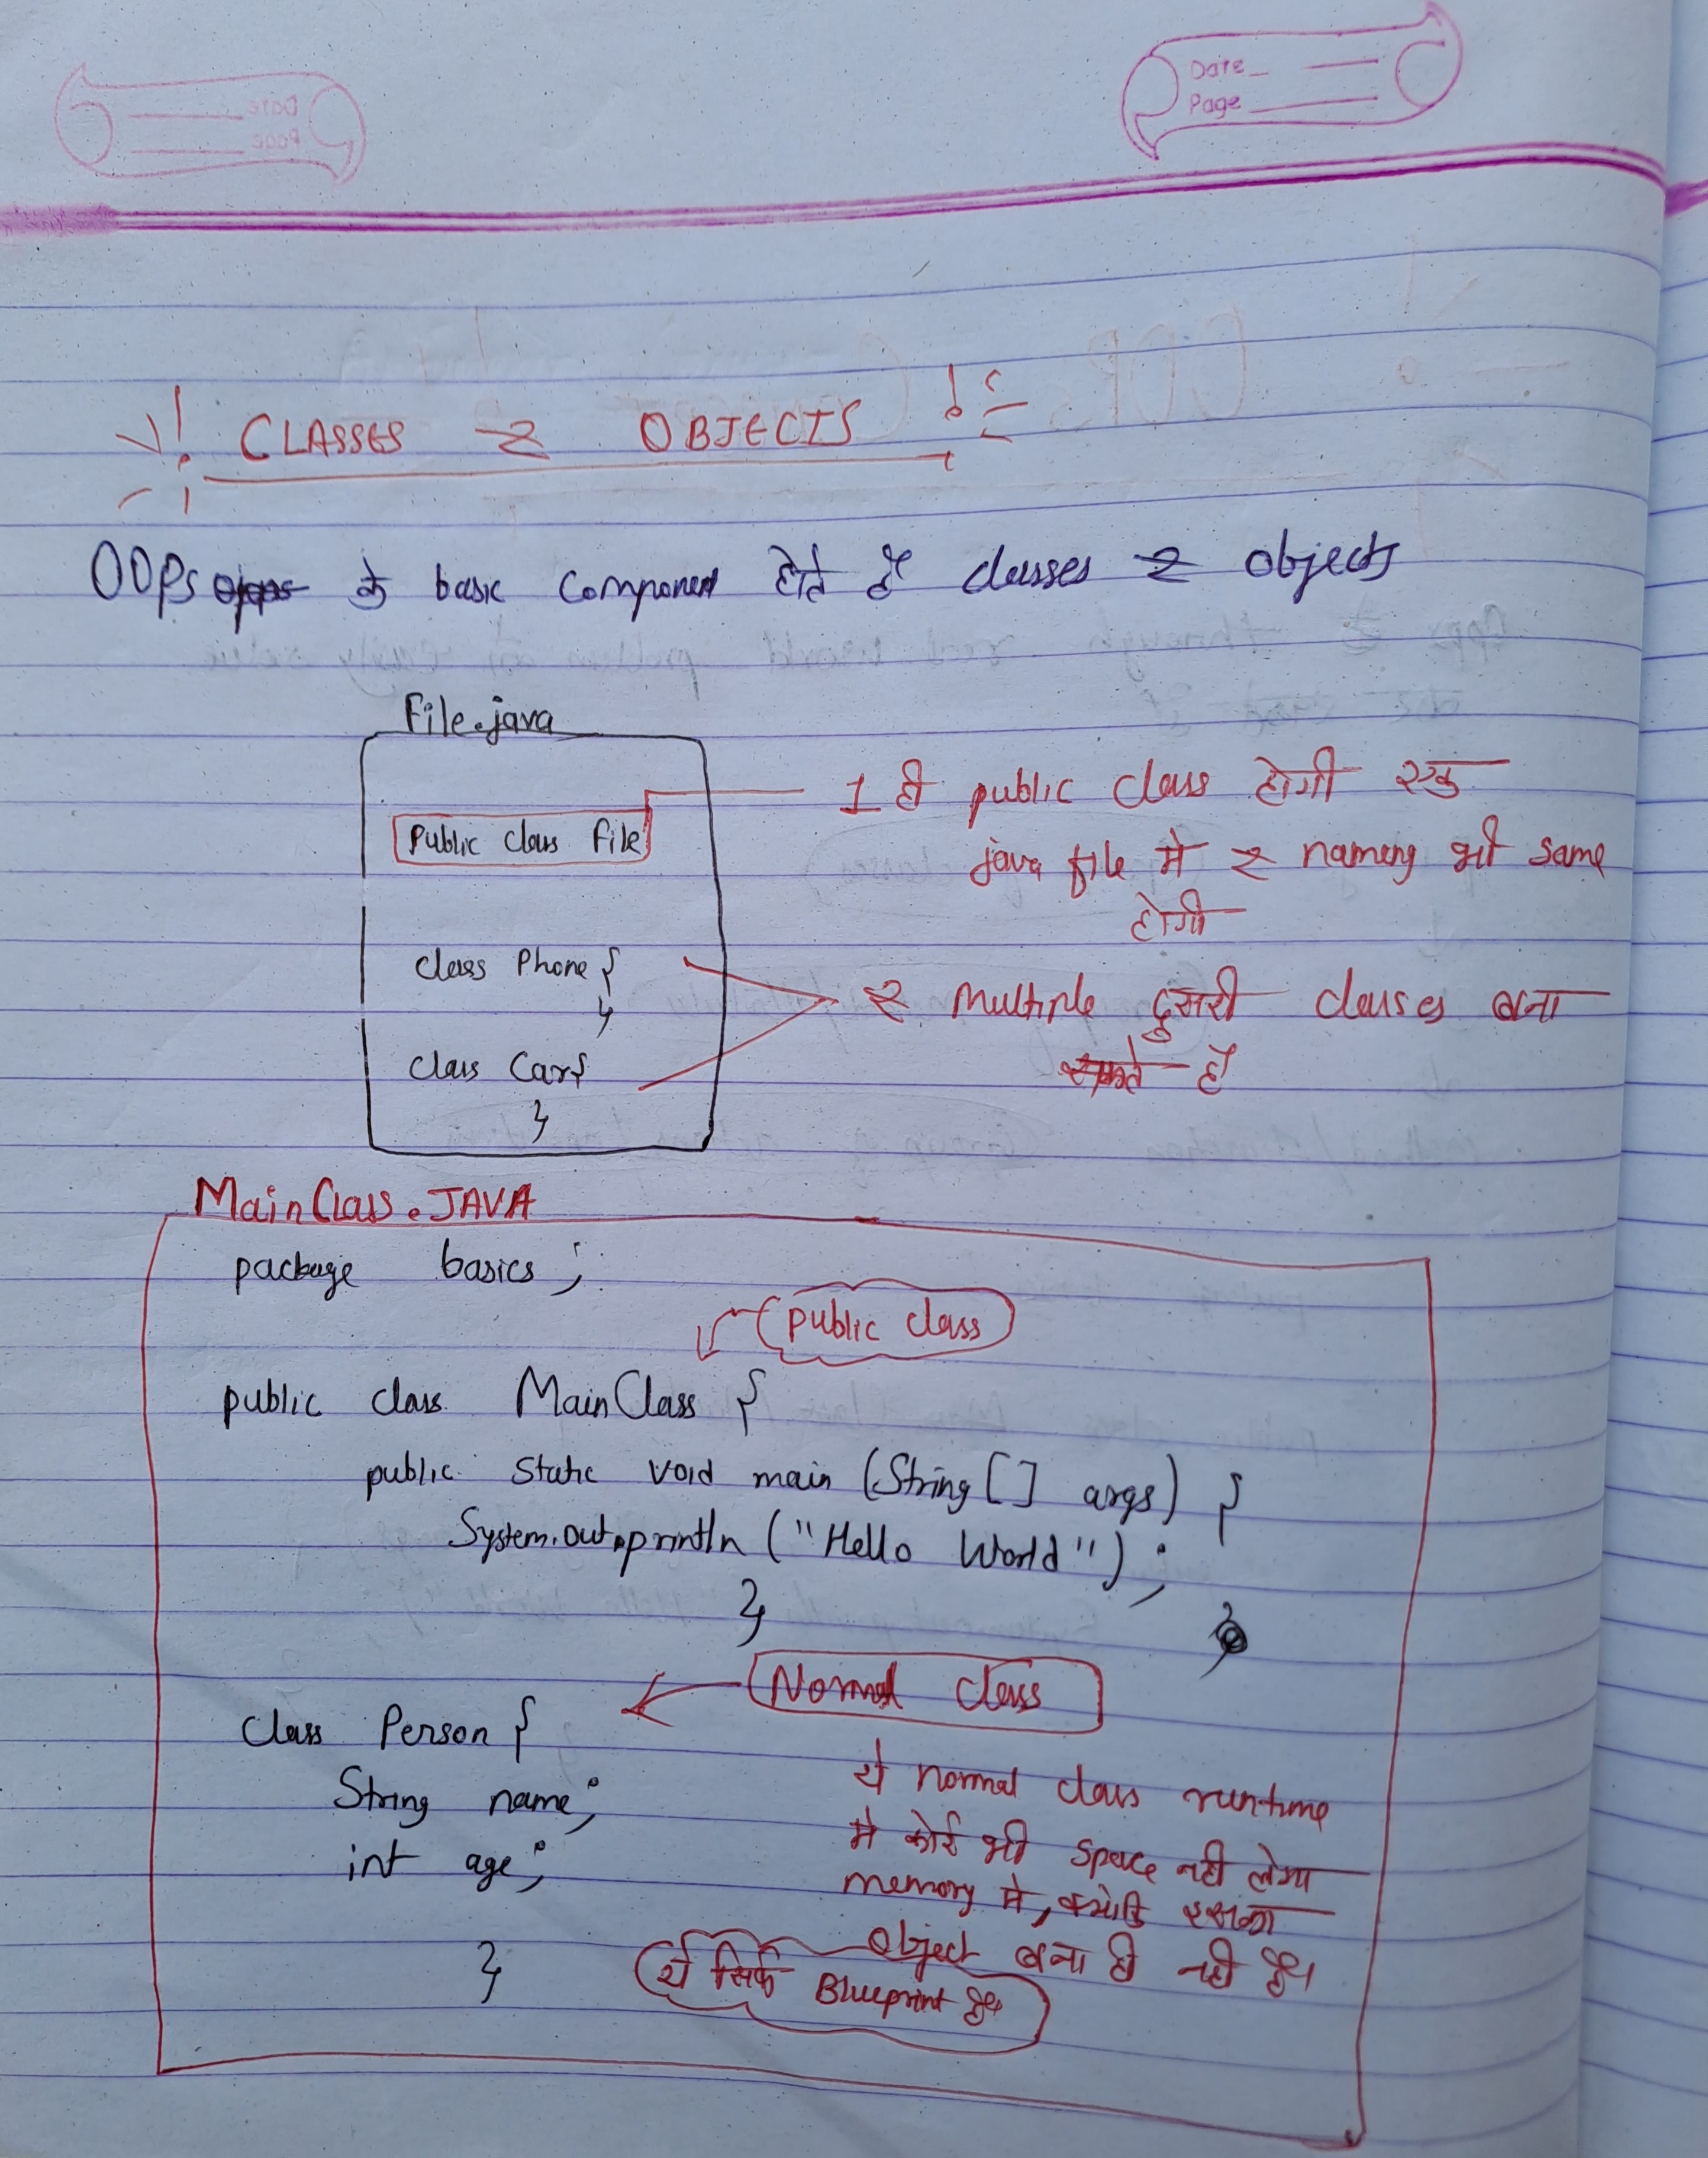 Date
Page
CLASSES & OBJECTS :-
OOPs के basic component होते हैं classes & objects
File.java
Public class File
1 ही public class होगी एक
java file में & naming भी same
होगी
class Phone {
}
& Multiple दुसरी classes बना
सकते हैं
class Car {
}
MainClass.JAVA
package basics;
public class
public class MainClass {
public static void main (String [] args) {
System.out.println ("Hello World");
}
}
Normal class
class Person {
String name;
int age;
}
ये normal class runtime
मे कोई भी space नही लेगा
memory मे, क्योकि इसका
object बना ही नही है।
ये सिर्फ Blueprint है।